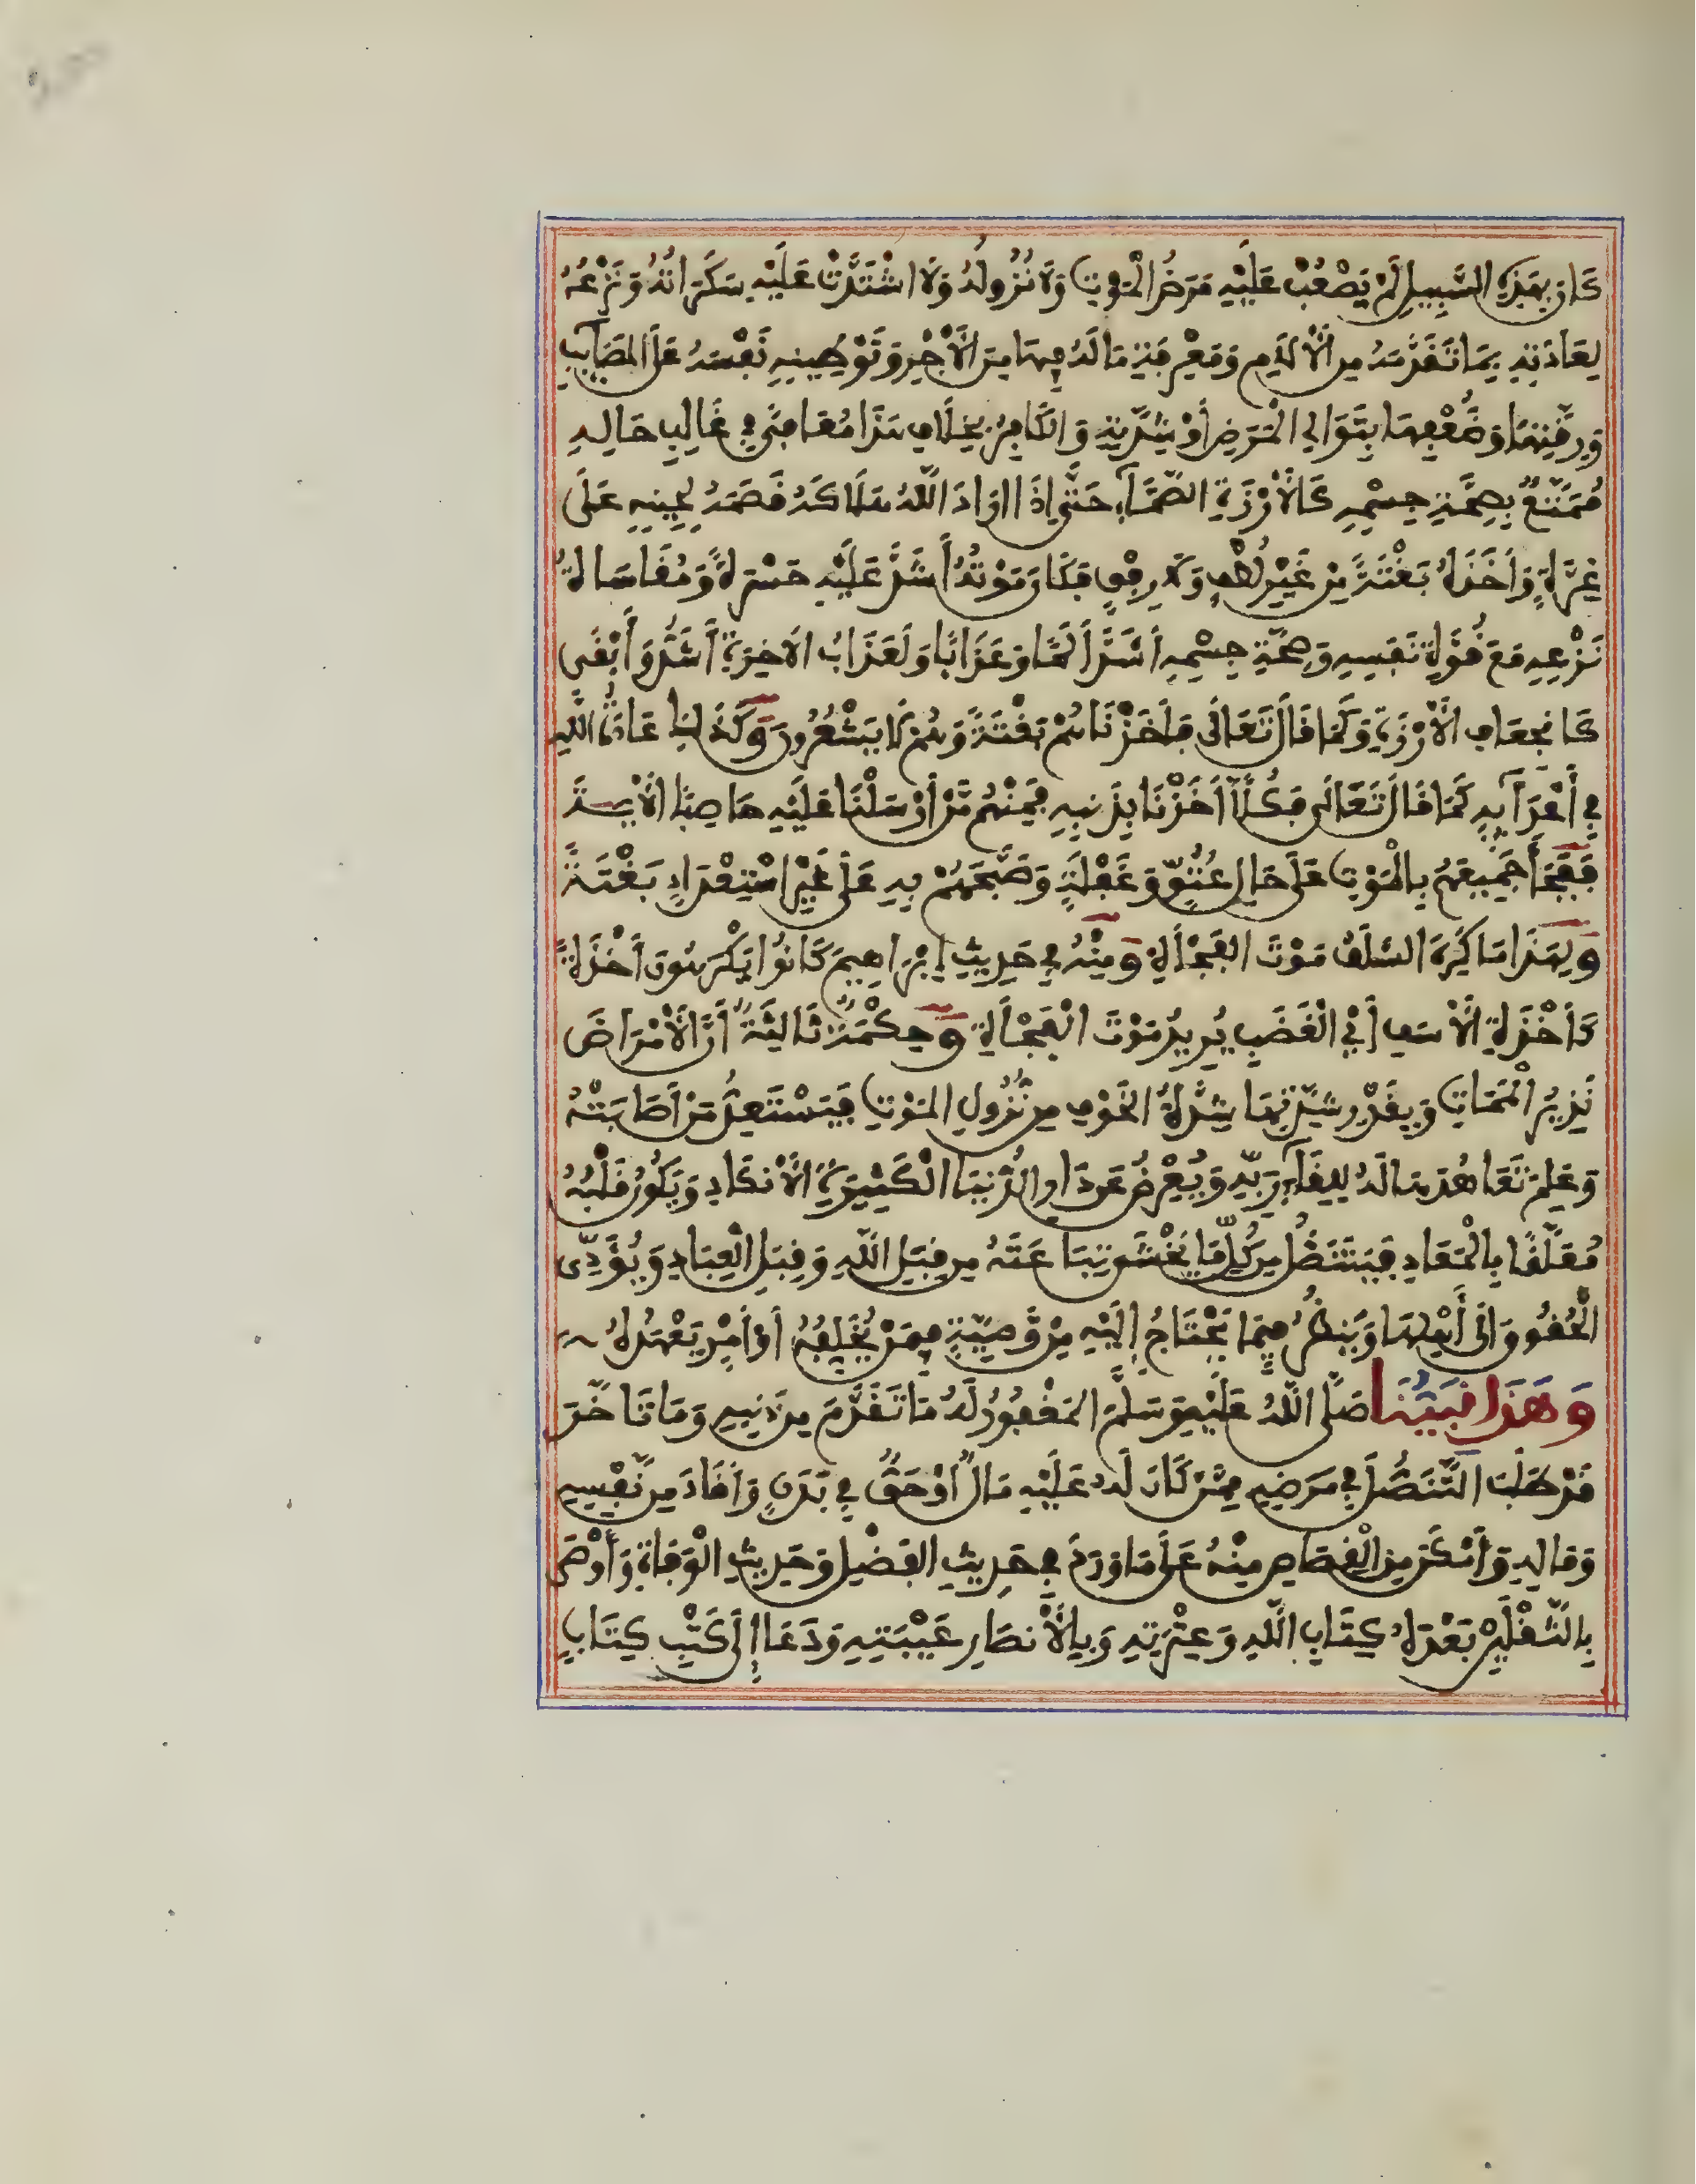 كَانَ بِهَذِهِ السَّبِيلِ لَمْ يَصْعُبْ عَلَيْهِ مَرَضُ الْمَوْتِ وَلَا نُزُولُهُ وَلَا اشْتَدَّتْ عَلَيْهِ سَكَرَاتُهُ وَنَزْعُهُ
لِعَادَتِهِ بِمَا تَقَدَّمَهُ مِنَ الْآلَامِ وَمَعْرِفَتِهِ مَا لَهُ فِيهَا مِنَ الْأَجْرِ وَتَوْطِينِهِ نَفْسَهُ عَلَى الْمَصَائِبِ
وَرِقَّتِهَا وَضُعْفِهَا بِتَوَالِي الْمَرَضِ أَوْ شِدَّتِهِ وَالْكَافِرُ بِخِلَافِ هَذَا مُعَافًى فِي غَالِبِ حَالِهِ
مُمَتَّعٌ بِصِحَّةِ جِسْمِهِ كَالْأَرْزَةِ الصَّمَّاءِ حَتَّى إِذَا أَرَادَ اللَّهُ هَلَاكَهُ قَصَمَهُ لِحِينِهِ عَلَى
غِرَّةٍ وَأَخَذَهُ بَغْتَةً مِنْ غَيْرِ لُطْفٍ وَلَا رِفْقٍ فَكَانَ مَوْتُهُ أَشَدَّ عَلَيْهِ حَسْرَةً وَمُقَاسَاةُ
نَزْعِهِ مَعَ قُوَّةِ نَفْسِهِ وَصِحَّةِ جِسْمِهِ أَشَدَّ أَلَمًا وَعَذَابًا وَلَعَذَابُ الْآخِرَةِ أَشَدُّ وَأَبْقَى
كَانْجِعَافِ الْأَرْزَةِ وَكَمَا قَالَ تَعَالَى فَأَخَذْنَاهُمْ بَغْتَةً وَهُمْ لَا يَشْعُرُونَ وَكَذَلِكَ عَادَةُ اللَّهِ
فِي أَعْدَائِهِ كَمَا قَالَ تَعَالَى فَكُلًّا أَخَذْنَا بِذَنْبِهِ فَمِنْهُمْ مَنْ أَرْسَلْنَا عَلَيْهِ حَاصِبًا الْآيَةَ
فَفَجَأَ جَمِيعَهُمْ بِالْمَوْتِ عَلَى حَالِ عُتُوٍّ وَغَفْلَةٍ وَصَبَّحَهُمْ بِهِ عَلَى غَيْرِ اسْتِعْدَادٍ بَغْتَةً
وَلِهَذَا مَا كَرِهَ السَّلَفُ مَوْتَ الْفَجْأَةِ وَمِنْهُ فِي حَدِيثِ إِبْرَاهِيمَ كَانُوا يَكْرَهُونَ أَخْذَةً
كَأَخْذَةِ الْأَسَفِ أَيِ الْغَضَبِ يُرِيدُ مَوْتَ الْفَجْأَةِ وَحِكْمَةٌ ثَالِثَةٌ أَنَّ الْأَمْرَاضَ
نَذِيرُ الْمَمَاتِ وَبِقَدْرِ شِدَّتِهَا شِدَّةُ الْخَوْفِ مِنْ نُزُولِ الْمَوْتِ فَيَسْتَعِدُّ مَنْ أَصَابَتْهُ
وَعَلِمَ تَعَاهُدَهَا لَهُ لِلِقَاءِ رَبِّهِ وَيُعْرِضُ عَنْ دَارِ الدُّنْيَا الْكَثِيرَةِ الْأَنْكَادِ وَيَكُونُ قَلْبُهُ
مُعَلَّقًا بِالْمَعَادِ فَيَتَنَصَّلُ مِنْ كُلِّ مَا يَخْشَى تِبَاعَتَهُ مِنْ قِبَلِ اللَّهِ وَقِبَلِ الْعِبَادِ وَيُؤَدِّي
الْحُقُوقَ إِلَى أَهْلِهَا وَيَنْظُرُ فِيمَا يَحْتَاجُ إِلَيْهِ مِنْ وَصِيَّةٍ فِيمَنْ يُخَلِّفُهُ أَوْ أَمْرٍ يَعْهَدُهُ
وَهَذَا نَبِيُّنَا صَلَّى اللَّهُ عَلَيْهِ وَسَلَّمَ الْمَغْفُورُ لَهُ مَا تَقَدَّمَ مِنْ ذَنْبِهِ وَمَا تَأَخَّرَ
قَدْ طَلَبَ التَّنَصُّلَ فِي مَرَضِهِ مِمَّنْ كَانَ لَهُ عَلَيْهِ مَالٌ أَوْ حَقٌّ فِي بَدَنٍ وَأَقَادَ مِنْ نَفْسِهِ
وَمَالِهِ وَأَمْكَنَ مِنَ الْقِصَاصِ مِنْهُ عَلَى مَا وَرَدَ فِي حَدِيثِ الْفَضْلِ وَحَدِيثِ الْوَفَاةِ وَأَوْصَى
بِالثَّقَلَيْنِ بَعْدَهُ كِتَابِ اللَّهِ وَعِتْرَتِهِ وَبِالْأَنْصَارِ عَيْبَتِهِ وَدَعَا إِلَى كَتْبِ كِتَابٍ